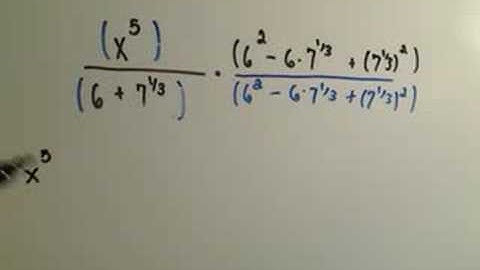 (x⁵) / (6 + 7^1/3) · (6² - 6·7^1/3 + (7^1/3)²) / (6² - 6·7^1/3 + (7^1/3)²)
x⁵